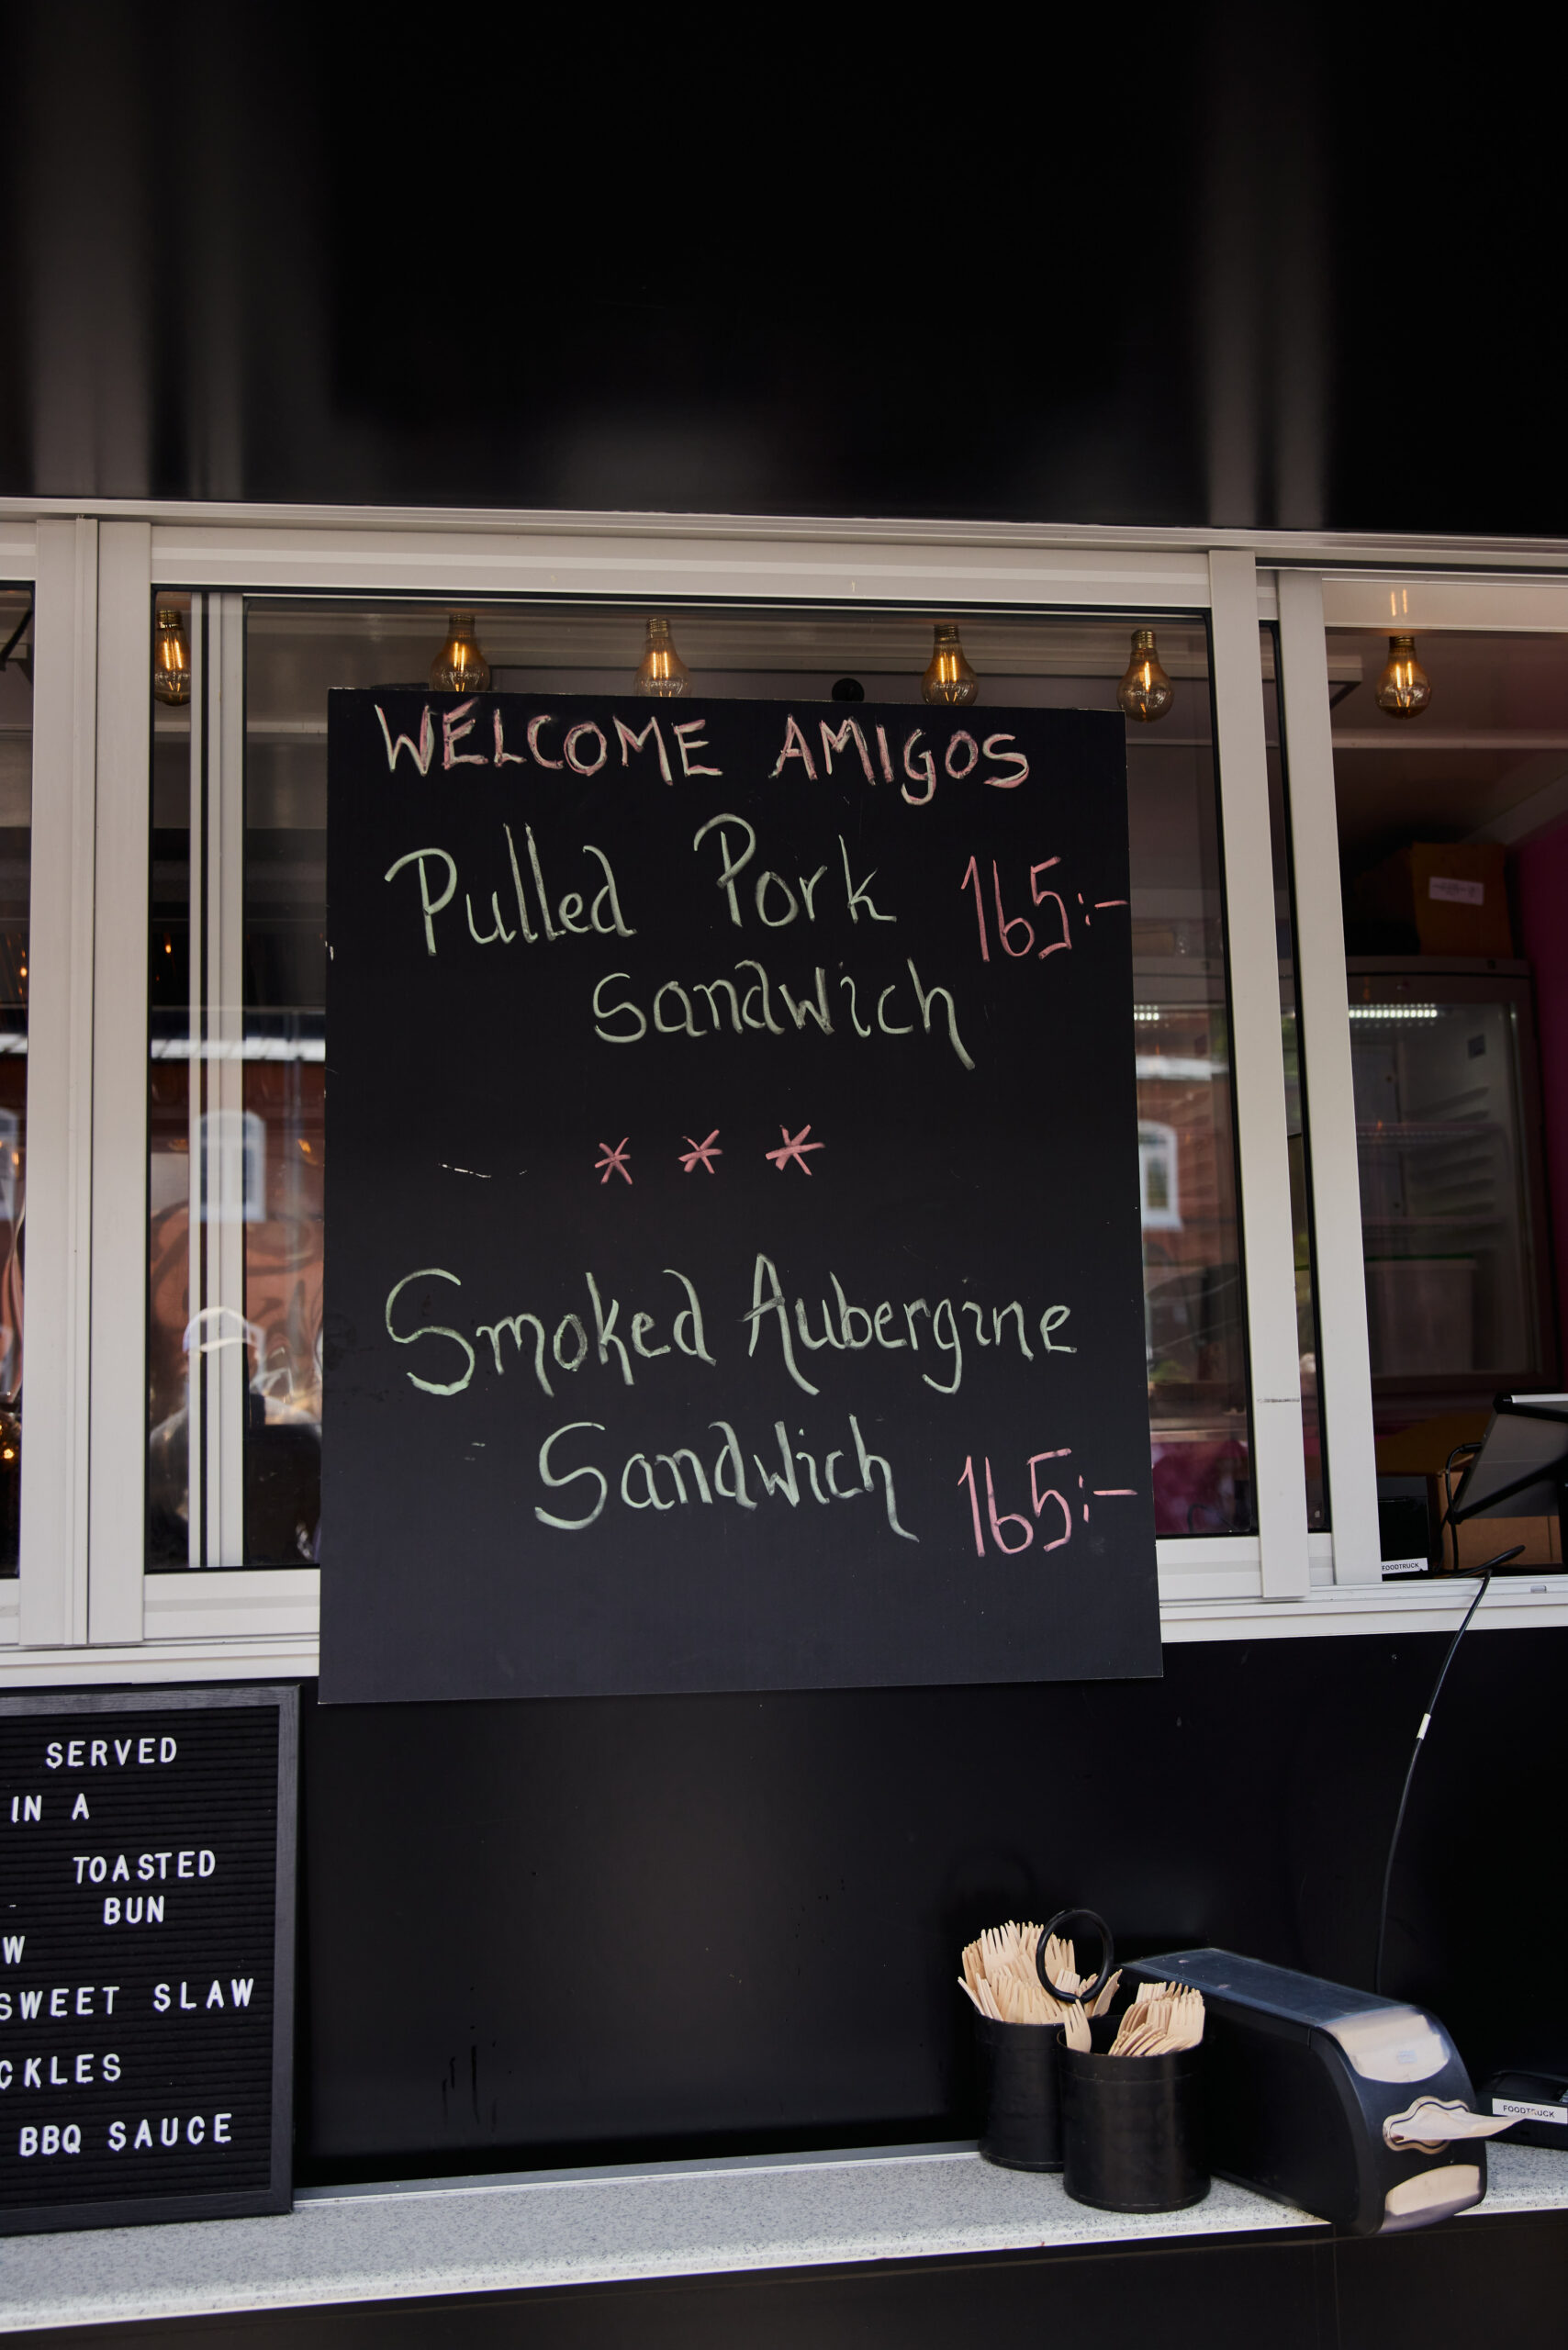 WELCOME AMIGOS
Pulled Pork 165:-
Sandwich
* * *
Smoked Aubergine
Sandwich 165:-
SERVED
IN A
TOASTED
BUN
W
SWEET SLAW
CKLES
BBQ SAUCE
FOODTRUCK
FOODTRUCK